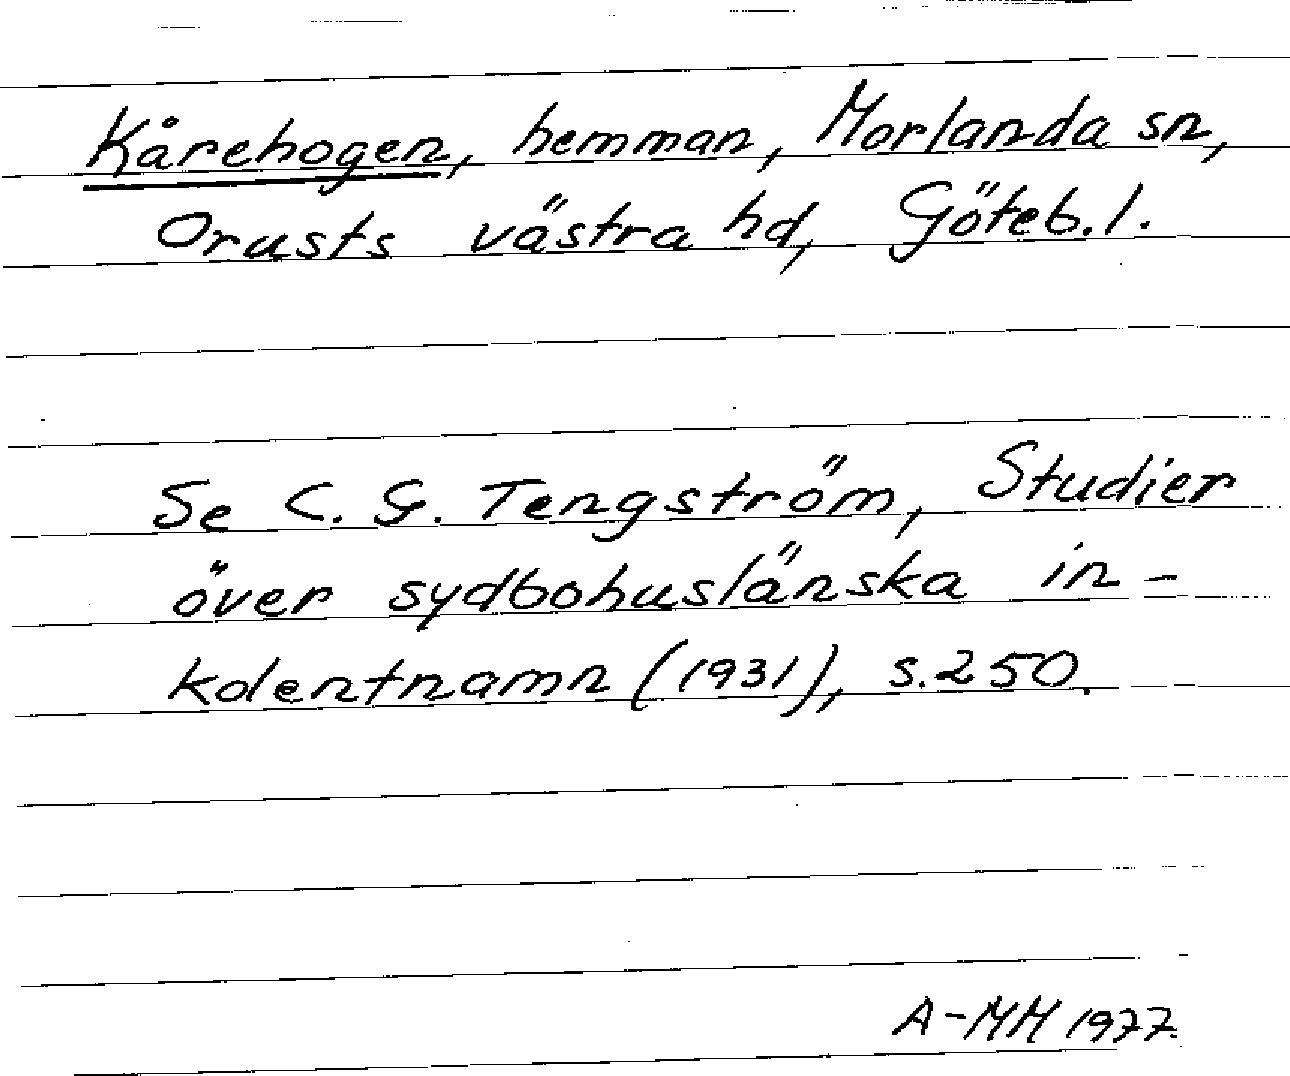 Kårehogen, hemman, Morlanda sn,
Orusts västra hd, Göteb. l.
Se C. G. Tengström, Studier
över sydbohuslänska in-
kolentnamn (1931), s. 250.
A-MM 1977.